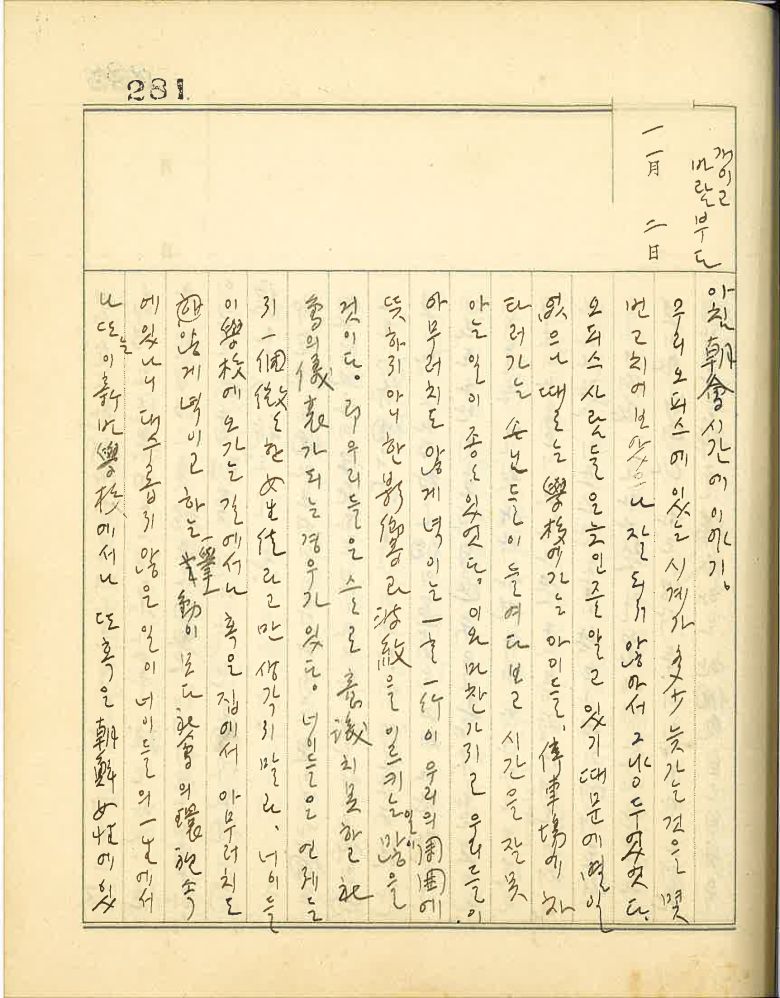 281
개이고
바람부다
一一月 二日
아침 朝會시간에 이야기,
우리 오피스에 있는 시계가 多少 늦가는 것을 몇
번 고치어보았으나 잘 되지 않아서 그냥 두었었다.
오피스 사람들은 늦인줄 알고 있기 때문에 별일
없으나 때로는 學校에 가는 아이들, 停車場에 차
타러가는 손님들이 들여다보고 시간을 잘못
아는 일이 종종 있었다. 이와 마찬가지로 우리들이
아무러치도 않게 녁이는 一言一行이 우리의 周圍에
뜻하지 아니한 影響과 波紋을 이르키는 일이 많을
것이다. 即 우리들은 스스로 意識치 못하고 社
會의 儀表가 되는 경우가 있다. 너이들은 언제든
지 一個 微々한 女生徒라고만 생각지 말라, 너이들
이 學校에 오가는 길에서나 혹은 집에서 아무러치도
않게 녁이고 하는 一擧一動이 모다 社會의 環視속
에 있나니 대수롭지 않은 일이 너이들의 一生에서
나 또는 이 新 學校에서나 또 혹은 朝鮮女性에 있